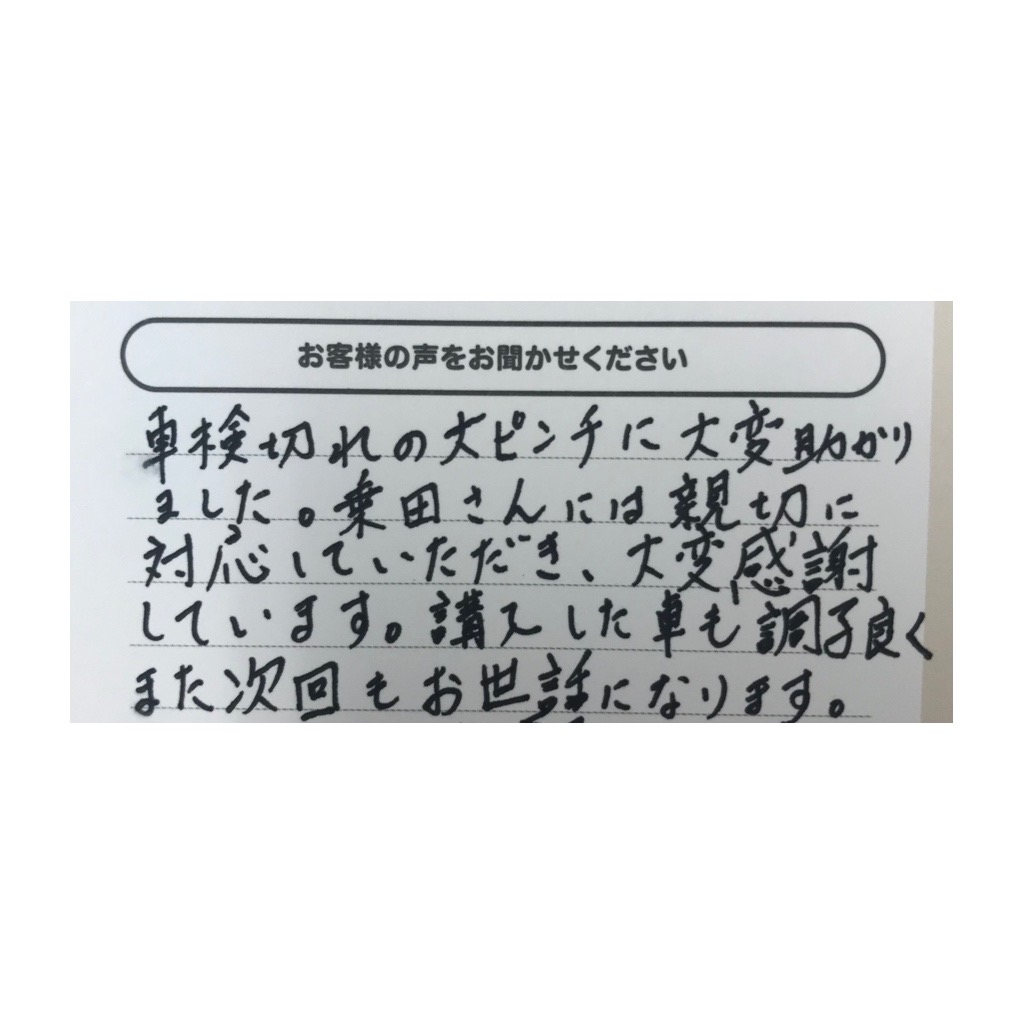 お客様の声をお聞かせください
車検切れの大ピンチに大変助かり
ました。乗田さんには親切に
対応していただき、大変感謝
しています。講入した車も調子良く
また次回もお世話になります。